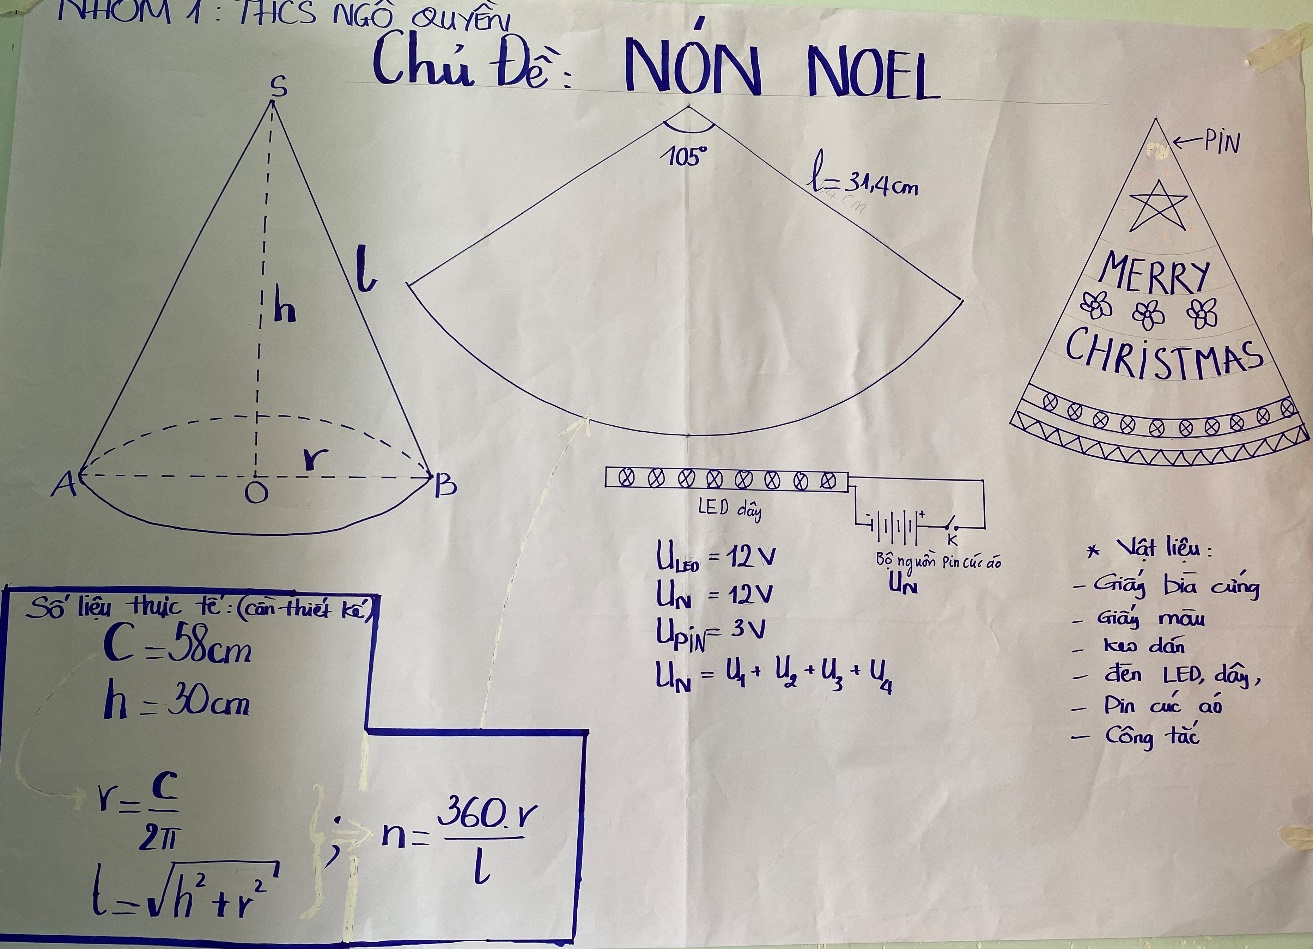 NHÓM 1: THCS NGÔ QUYỀN
Chủ Đề: NÓN NOEL
S
l
h
r
A
O
B
105°
l = 31,4cm
PiN
MERRY
CHRiSTMAS
LED dây
- +
K
Bộ nguồn Pin cúc áo
UN
ULED = 12V
UN = 12V
UPiN = 3V
UN = U1 + U2 + U3 + U4
* Vật liệu:
- Giấy bìa cứng
- Giấy màu
- keo dán
- đèn LED, dây,
- Pin cúc áo
- Công tắc
Số liệu thực tế: (cần thiết kế)
C = 58cm
h = 30cm
r = C / 2π
l = √h² + r²
; n = 360.r / l